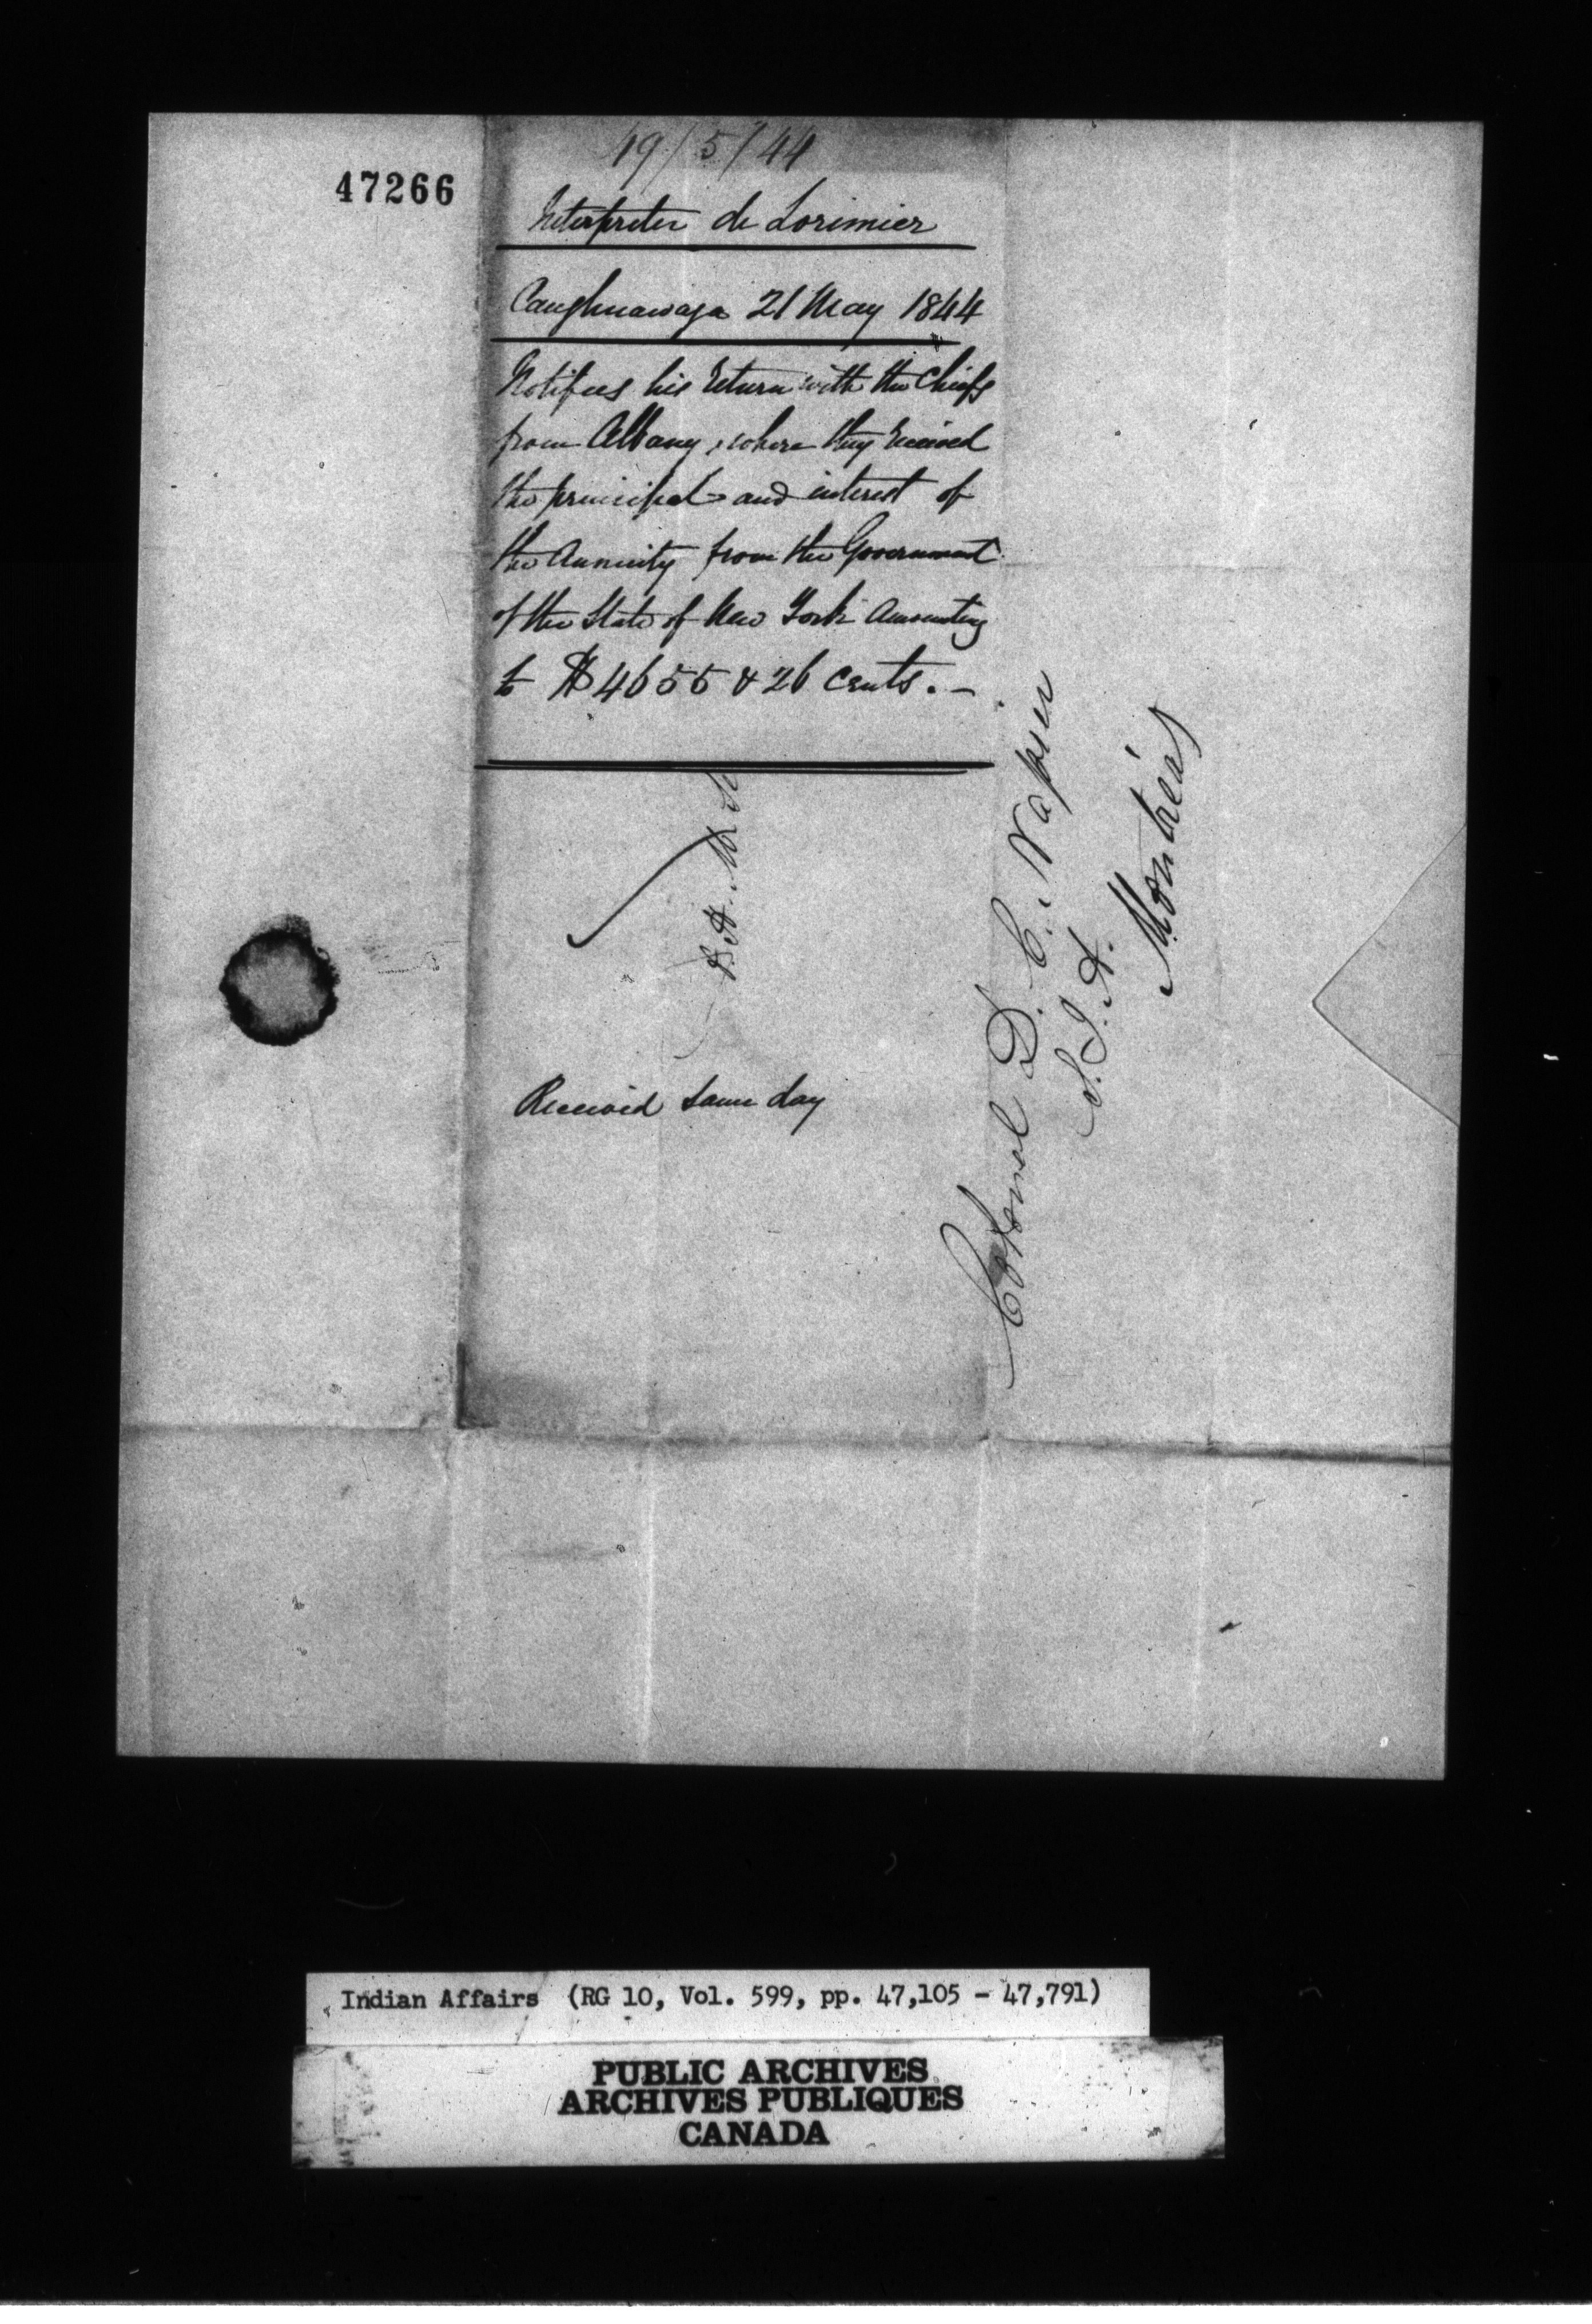 47266
19/5/44
Interpreter de Lorimier
Caughnawaga 21 May 1844
Notifies his return with the Chiefs
from Albany, where they received
the principal and interest of
the Annuity from the Government
of the State of New York Amounting
to $4655 & 26 cents. –
Received same day
Colonel D. C. Napier
S. I. A.
Montreal
Indian Affairs (RG 10, Vol. 599, pp. 47,105 - 47,791)
PUBLIC ARCHIVES
ARCHIVES PUBLIQUES
CANADA